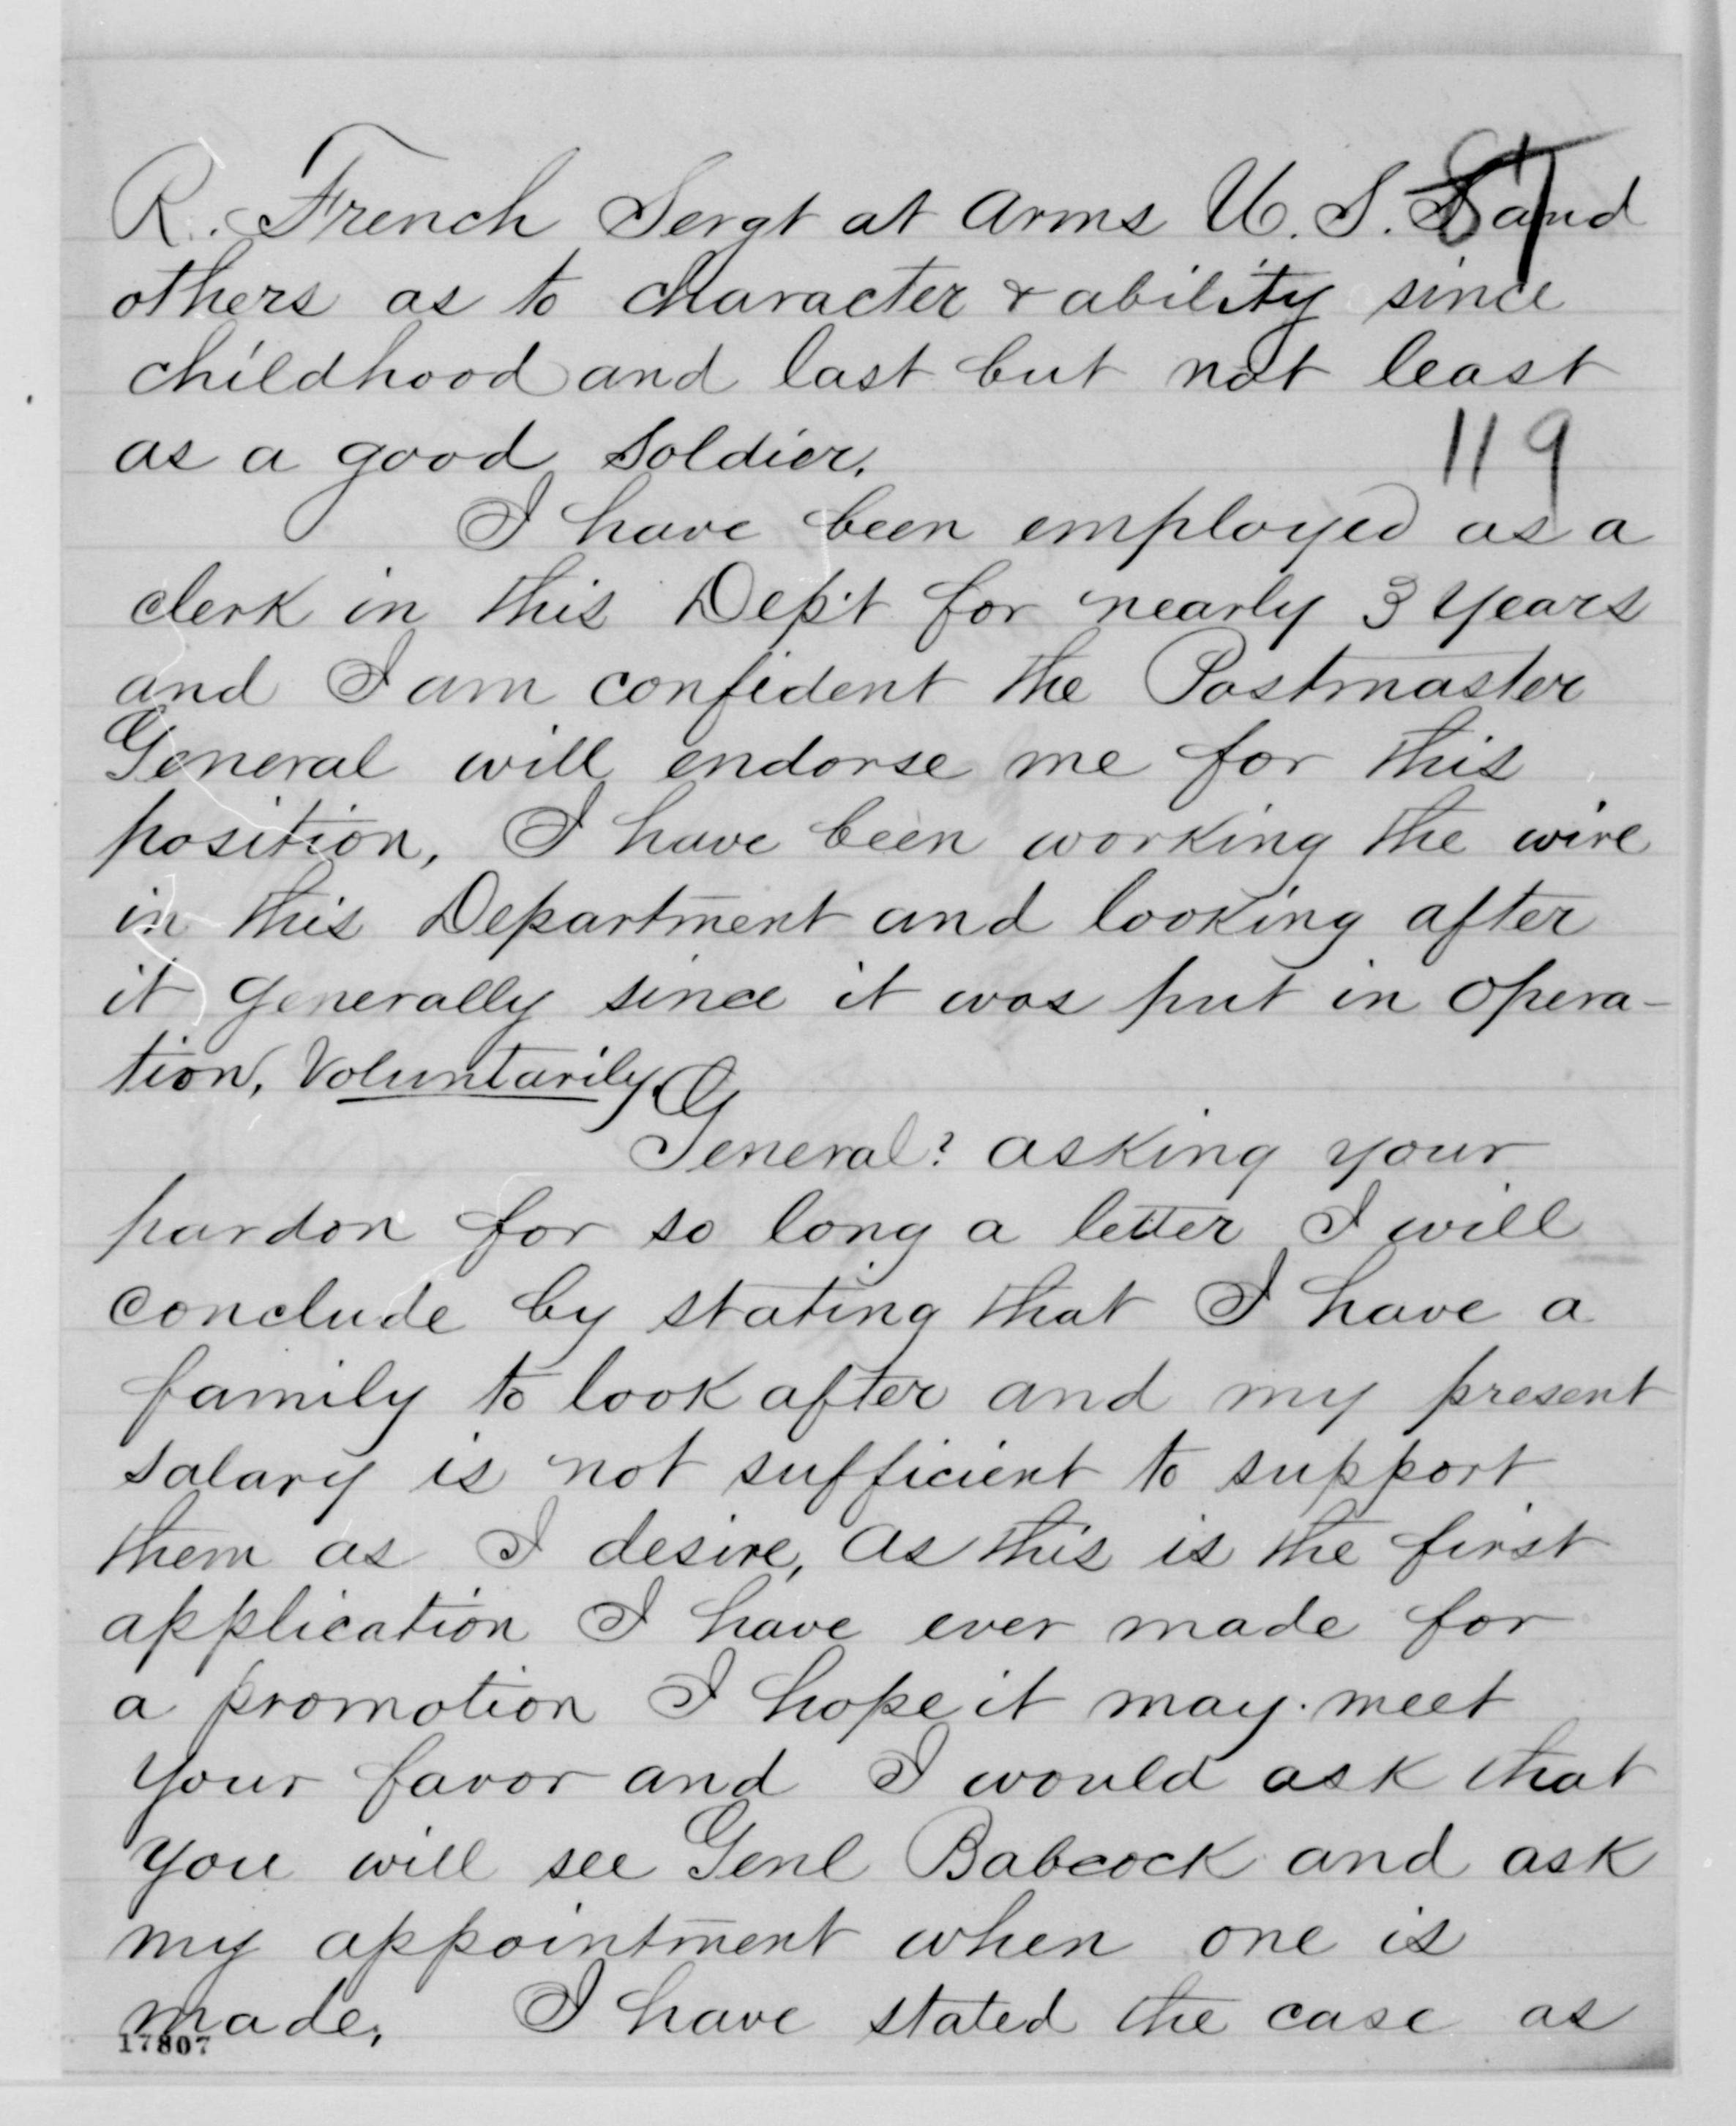 R. French Sergt at Arms U. S. S and
others as to character & ability since
childhood and last but not least
as a good soldier.
119
I have been employed as a
clerk in this Dep't for nearly 3 years
and I am confident the Postmaster
General will endorse me for this
position, I have been working the wire
in this Department and looking after
it generally since it was put in opera-
tion, Voluntarily.
General? asking your
pardon for so long a letter I will
conclude by stating that I have a
family to look after and my present
salary is not sufficient to support
them as I desire, As this is the first
application I have ever made for
a promotion I hope it may meet
your favor and I would ask that
you will see Genl Babcock and ask
my appointment when one is
made, I have stated the case as
17807